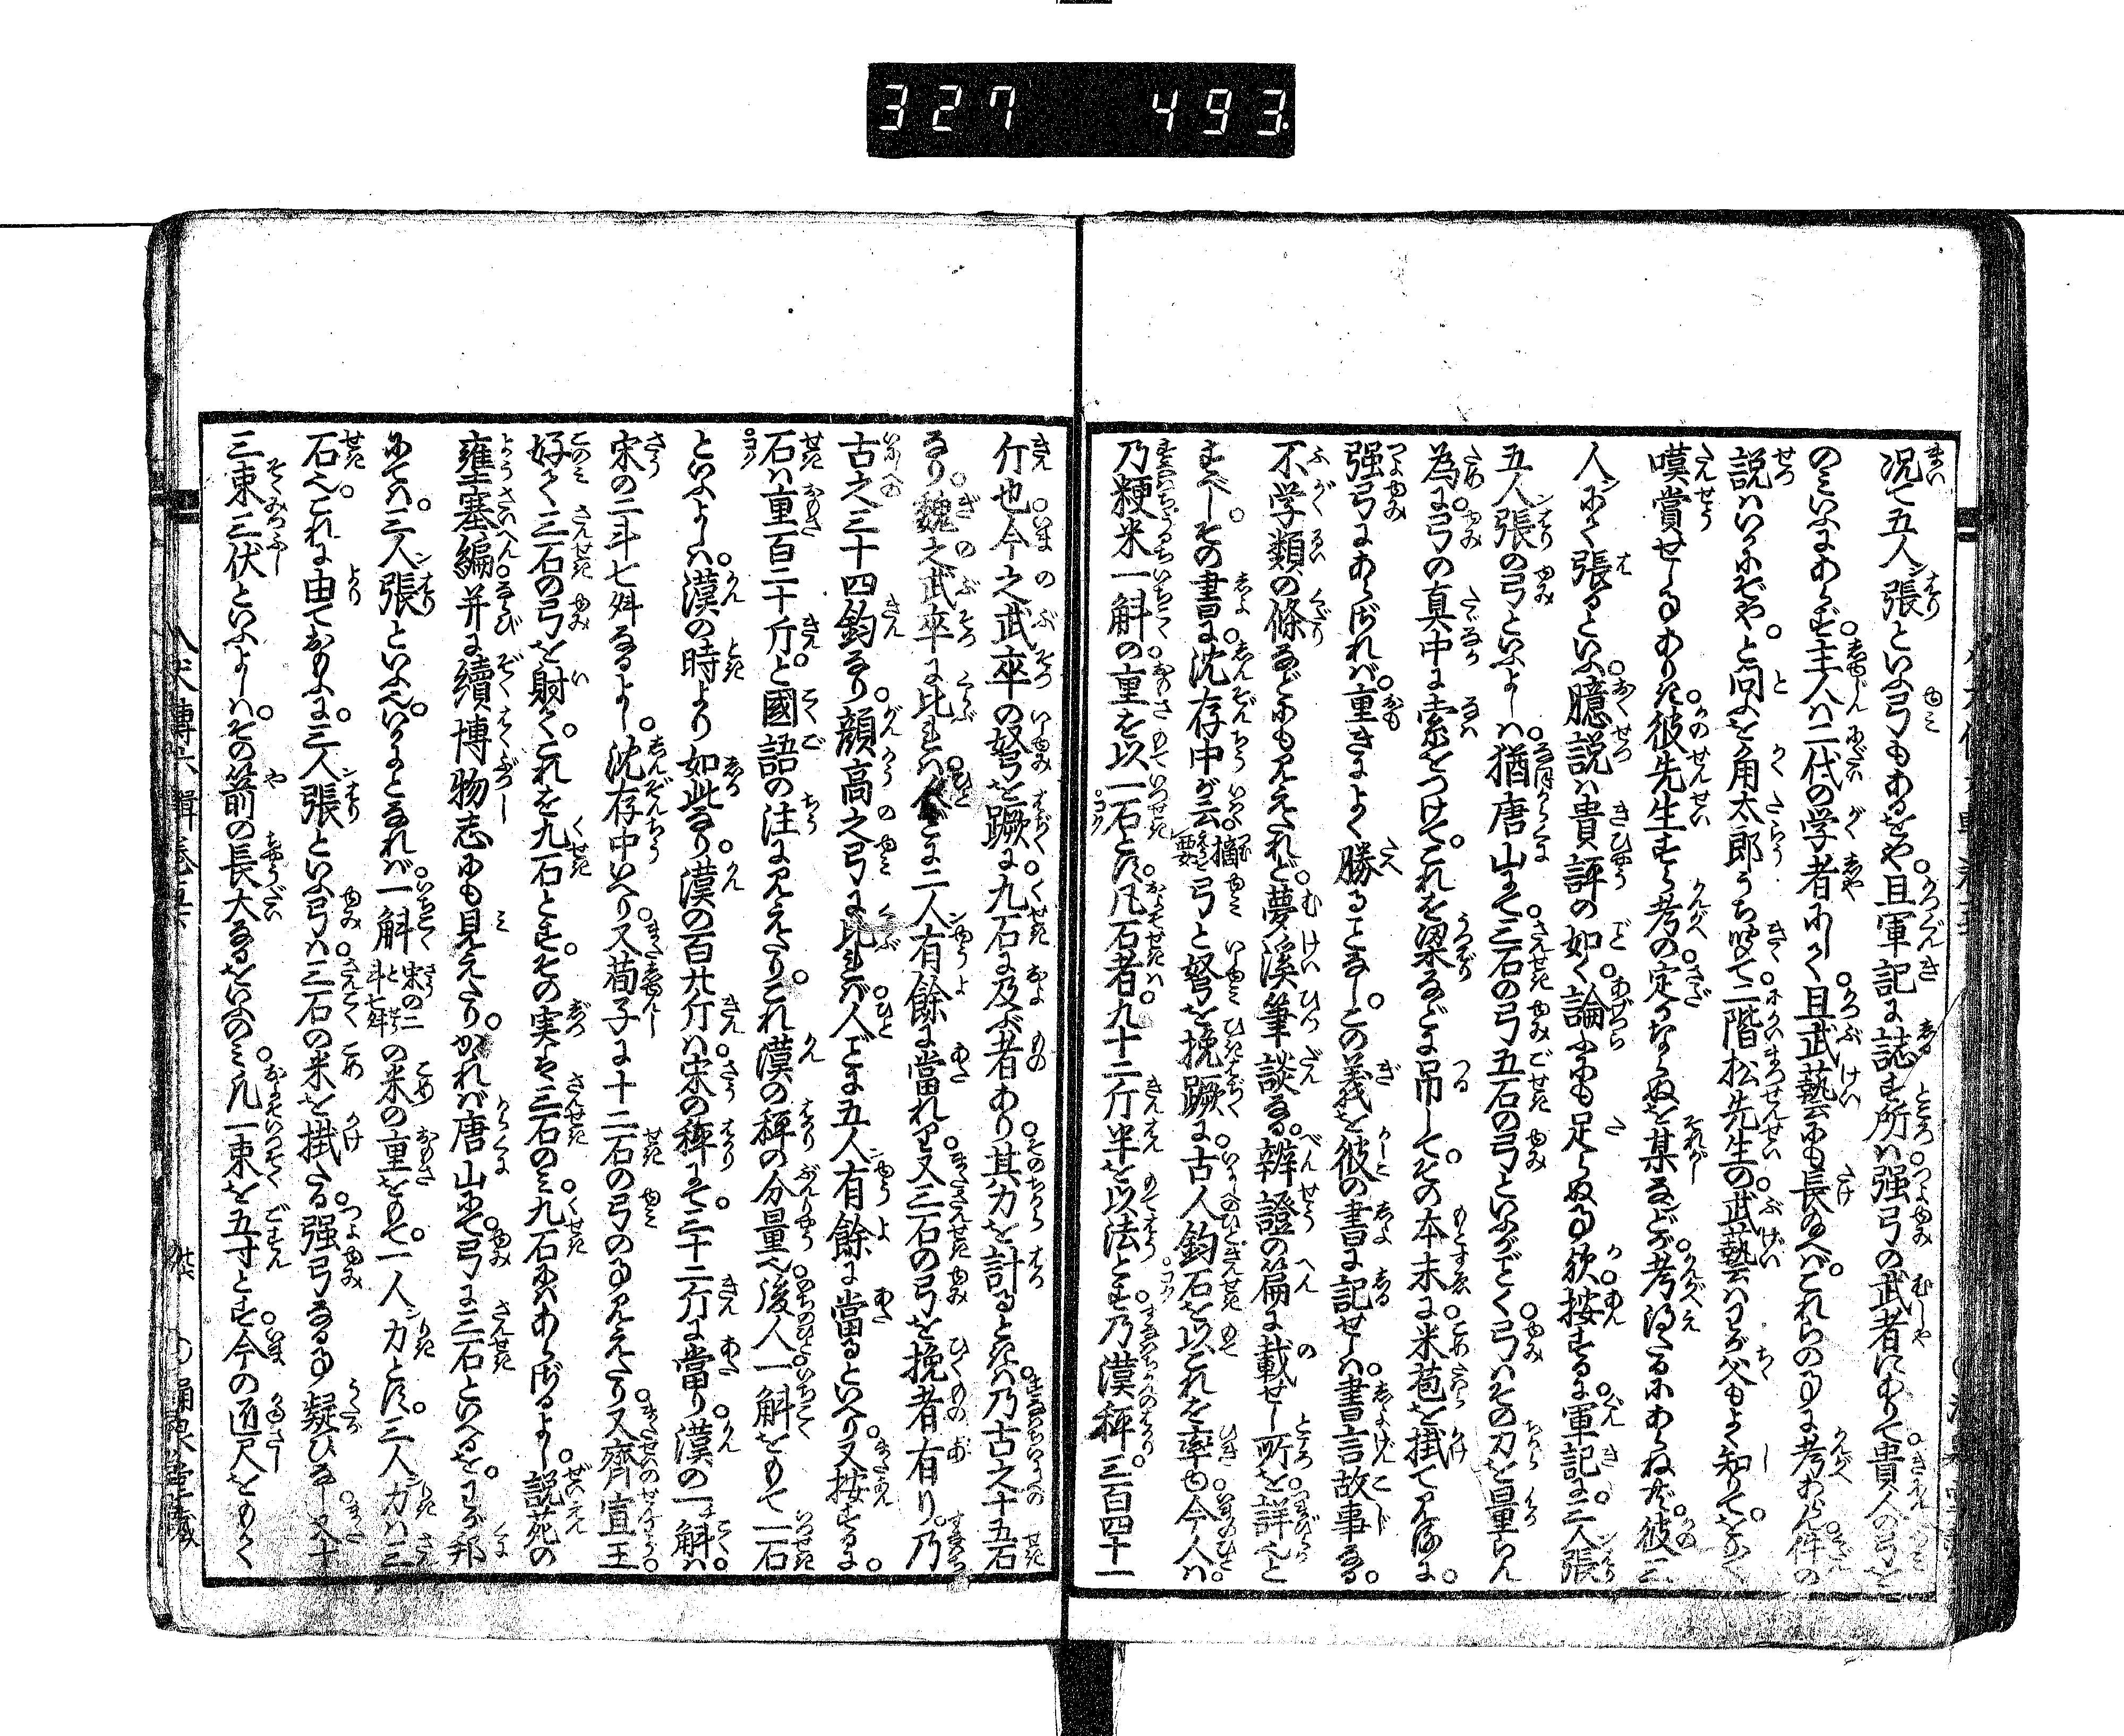 327 493
况て五人張といふ弓もあるをや。且軍記に誌す所は。强弓の武者にありて。貴人の弓を
のみいふにあらず。主人は二代の学者にして。且武藝にも長給へば。これらの事は考あらん。件の
説はいかにぞや。と問を角太郎うち聴て。二階松先生の。武藝はわが父もよく知りて。をさ〳〵
嘆賞せし事ありき。彼先生すら考の。定かならぬを某などが。考得たるにあらねども。彼二
人して張るといふ。臆説は貴評の如く。論ふにも足らぬ事歟。按ずるに。軍記に二人張
五人張の弓といふよしは。猶唐山にて。三石の弓五石の弓といふがごとく。弓はその力を量らん
為に。弓の真中に索をつけて。これを梁などに吊して。その本末に米苞を掛て見るに。
强弓にあらざれば。重きによく勝ることなし。この義を彼の書に記せしは。書言故事なる。
不学類の條などにも見えたれど。夢溪筆談なる。辨證の篇に載せし所を。詳也と
すべし。その書に。沈存中が云。摘要弓と弩を挽蹶に。古人鈞石を以これを率も。今人は。
乃粳米一斛の重を以一石とす。凡石者。九十二斤半を以法とす。乃漢秤。三百四十一
斤也。今之武卒の弩を蹶に。九石に及ぶ者あり。其力を計るときは。乃古之十五石
なり。魏之武卒に比れば。人ごとに二人有餘に當れり。又三石の弓を挽者有り。乃
古之三十四鈞なり。顔高之弓に比れば。人ごとに五人有餘に當るといへり。又按ずるに。
石は重百二十斤。と國語の注に見えたり。これ漢の秤の分量也。後人一斛をもて一石
といふよしは。漢の時より如此なり。漢の百廿斤は。宋の秤にて。三十二斤に當り。漢の一斛は。
宋の二斗七舛なるよし。沈存中いへり。又荀子に十二石の弓の事見えたり。又齊宣王。
好て三石の弓を射く。これを九石とす。その実は三石のみ。九石にはあらざるよし。説苑の
雍塞編。并に續博物志にも見えたり。かゝれば唐山にて。弓に三石といへるを。わが邦
にては。三人張といふ也。いかにとなれば。一斛宋の二斗七舛の米の重をもて。一人力とす。三人力は三
石也。これに由ておもふに。三人張といふ弓は。三石の米を掛たる。强弓なる事疑ひなし。又十
三束三伏といふよしは。その箭の長大なるをいふのみ。凡一束を五寸とす。今の曲尺をもて
八犬傳六輯卷五下 廿 〇涌泉堂藏